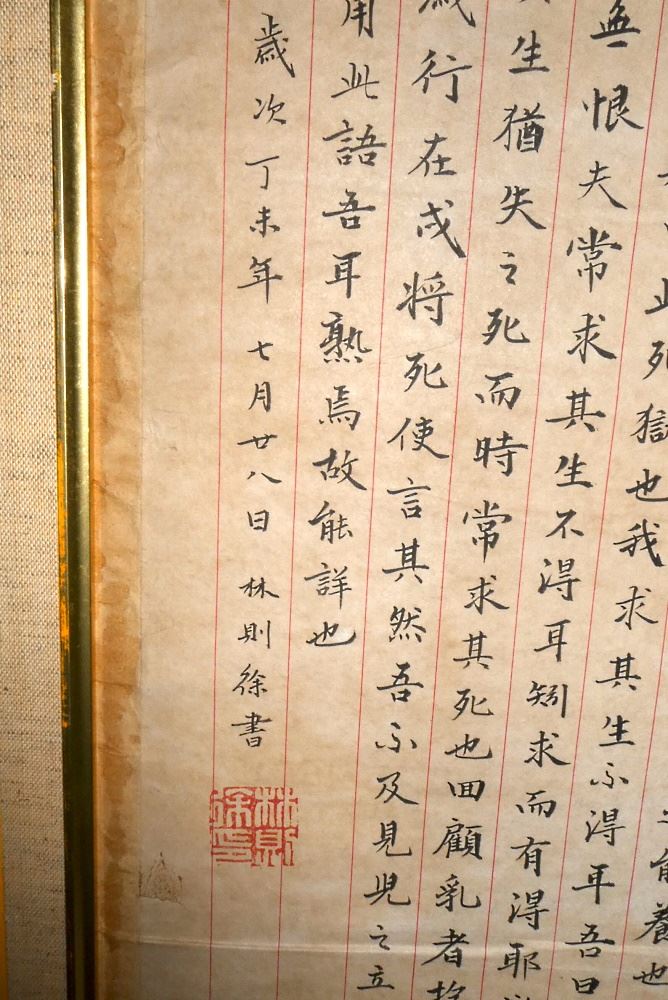 能養也
此死獄也我求其生不得耳吾曰
無恨夫常求其生不得耳矧求而有得耶
生猶失之死而時常求其死也回顧乳者
歲行在成將死使言其然吾不及見兒之立
用此語吾耳熟焉故能詳也
歲次丁未年七月廿八日林則徐書
林則徐印